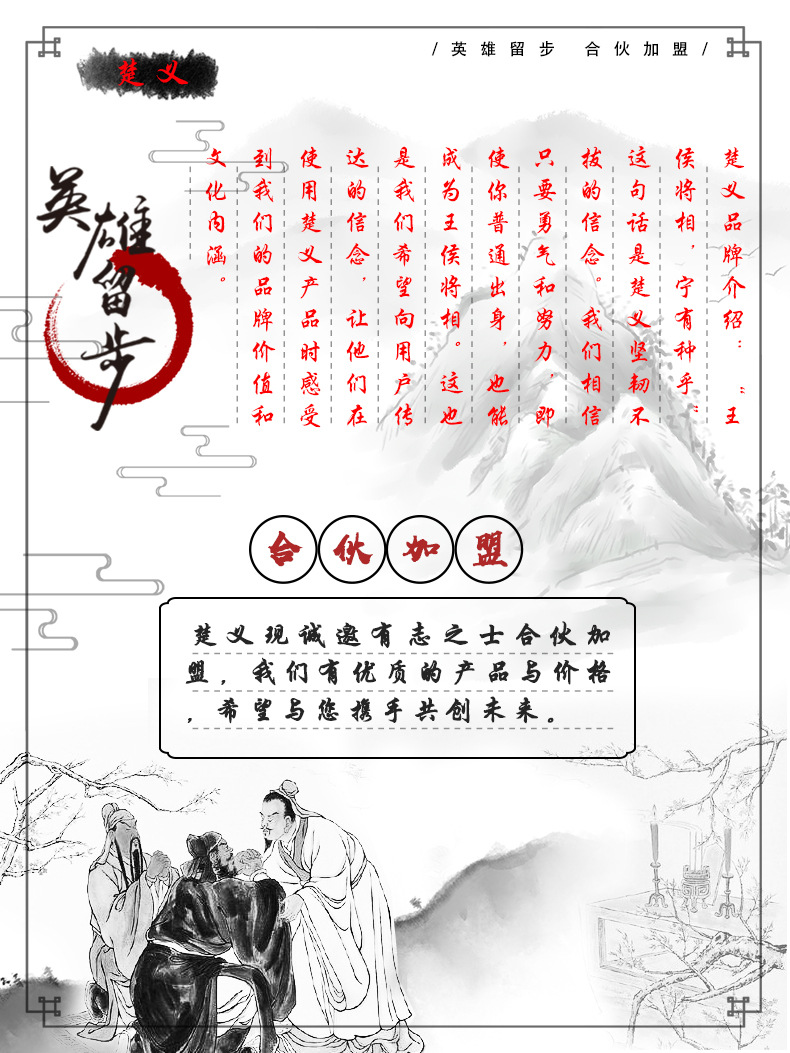 / 英雄留步 合伙加盟 /
楚义
英雄留步
楚义品牌介绍：“王
侯将相，宁有种乎”
这句话是楚义坚韧不
拔的信念。我们相信
只要勇气和努力，即
使你普通出身，也能
成为王侯将相。这也
是我们希望向用户传
达的信念，让他们在
使用楚义产品时感受
到我们的品牌价值和
文化内涵。
合伙加盟
楚义现诚邀有志之士合伙加
盟，我们有优质的产品与价格
，希望与您携手共创未来。